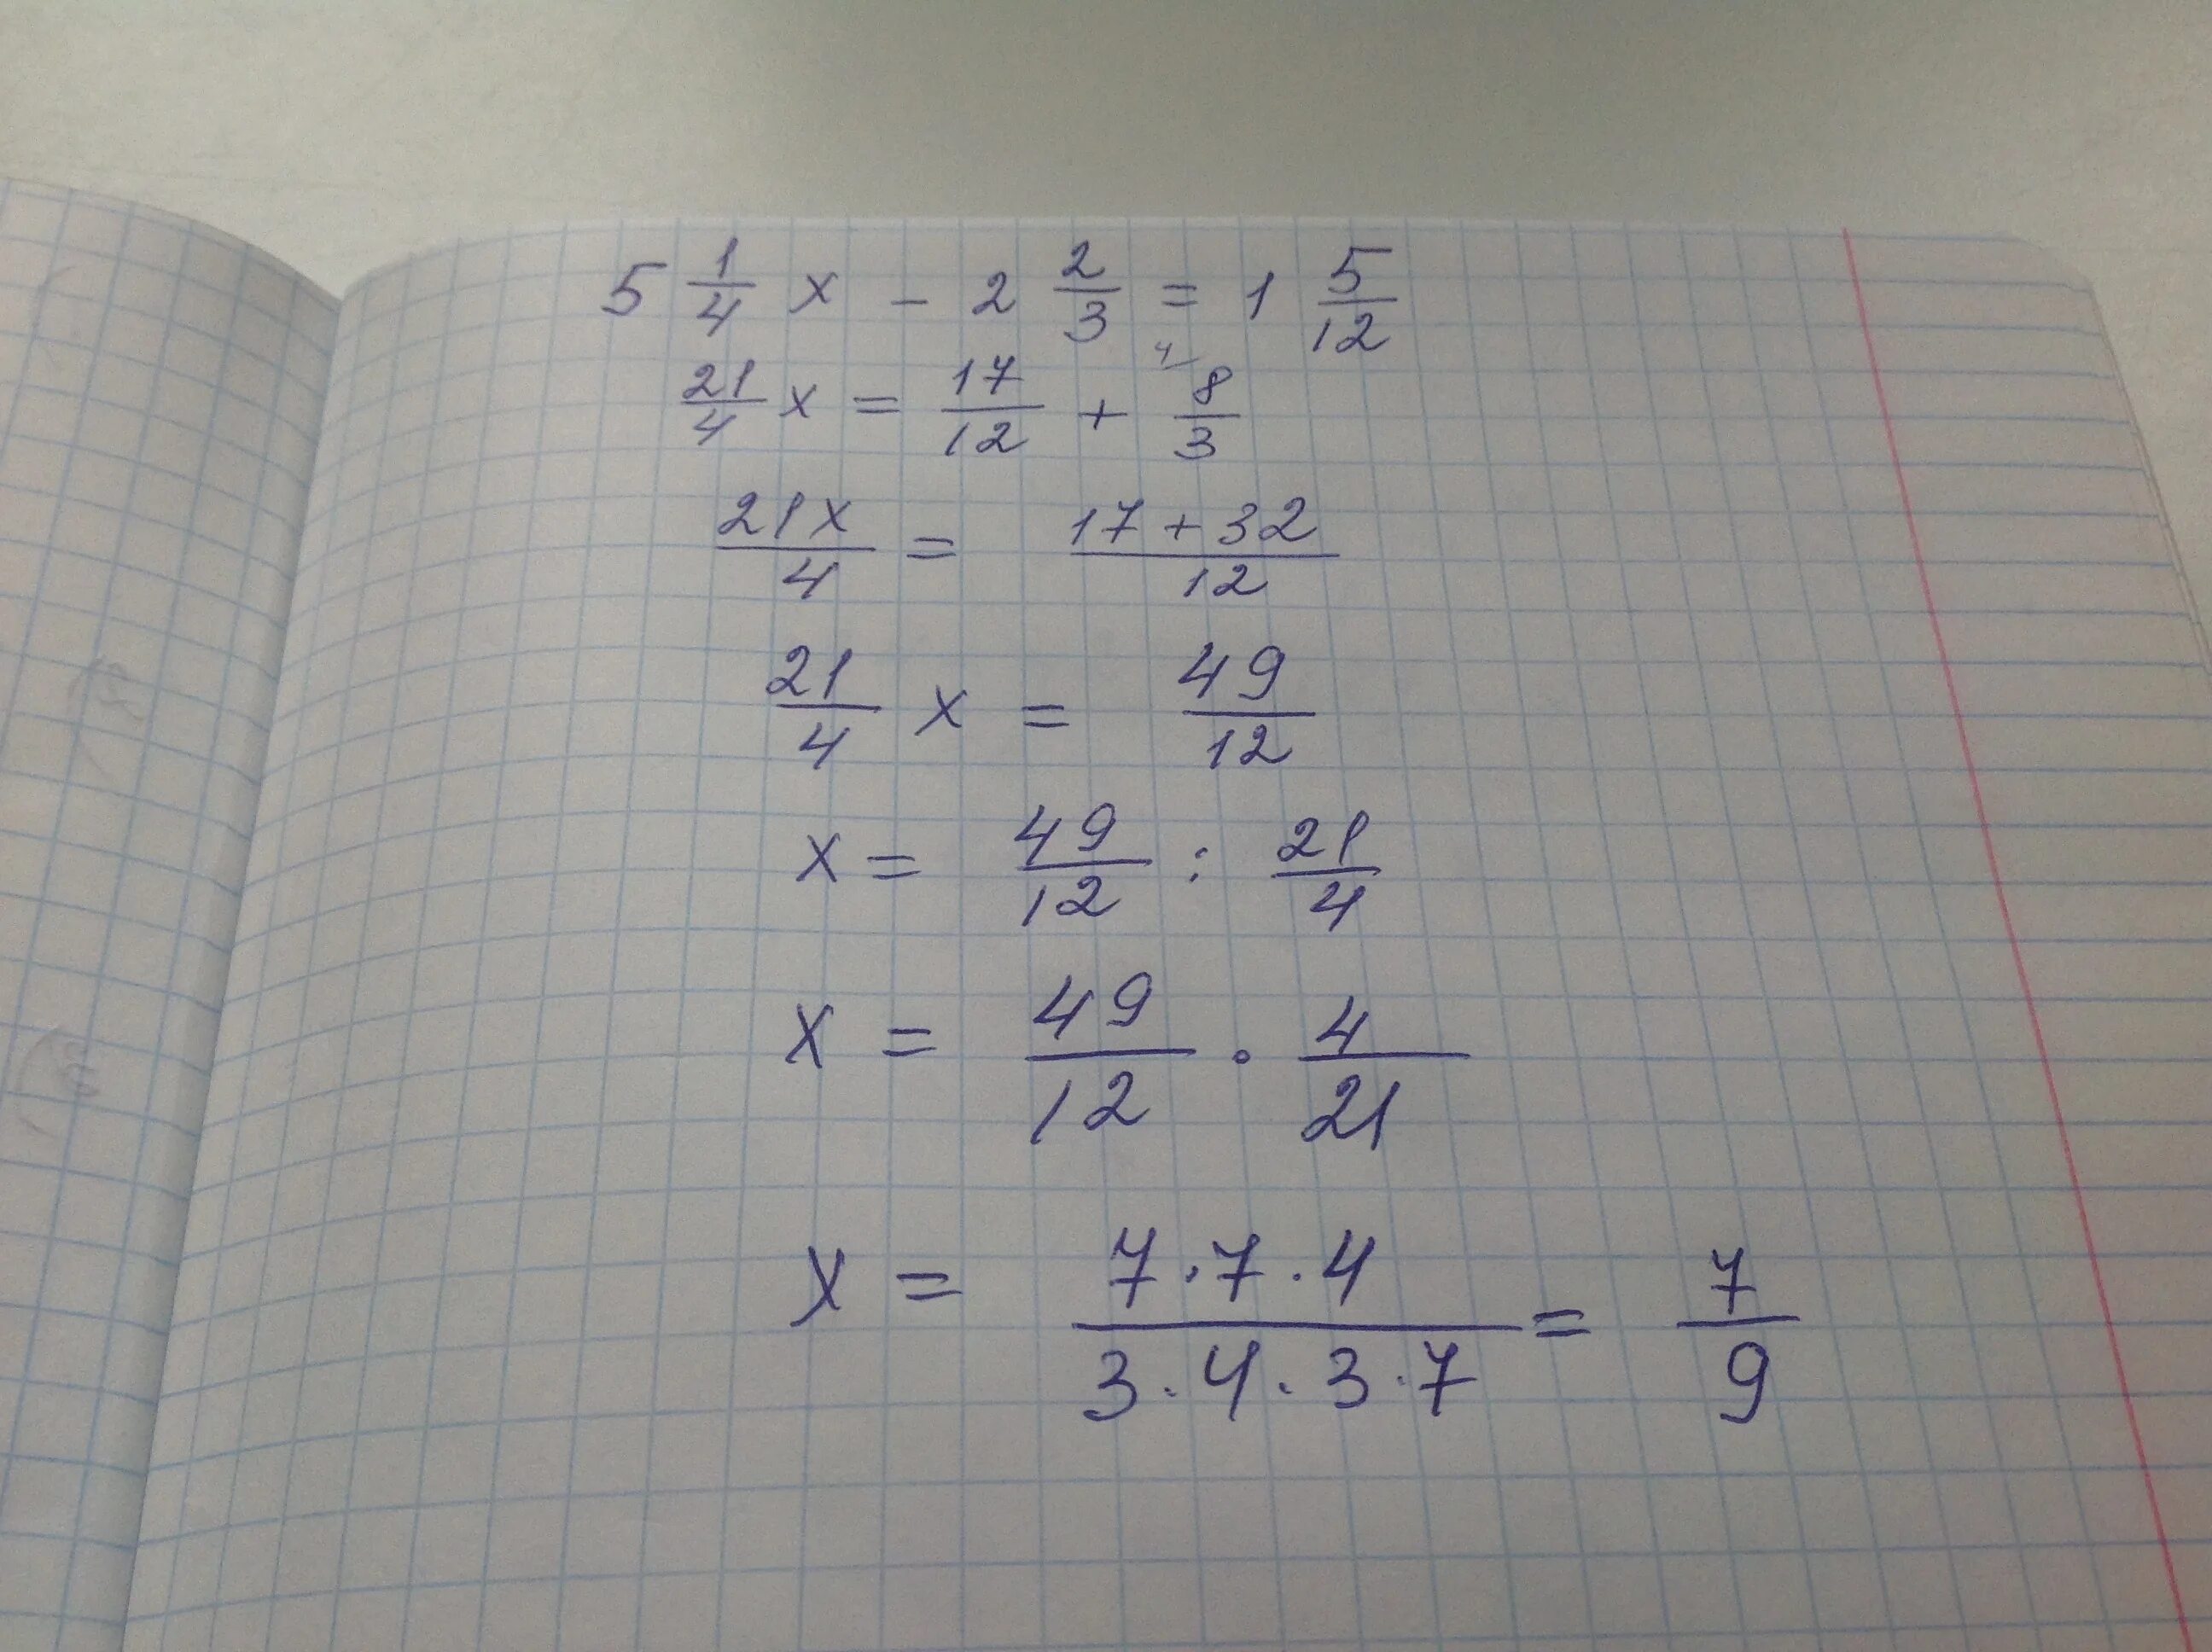 5 1/4 x - 2 2/3 = 1 5/12
21/4 x = 17/12 + 8/3 4
21x/4 = 17+32/12
21/4 x = 49/12
x = 49/12 : 21/4
x = 49/12 · 4/21
x = 7·7·4/3·4·3·7 = 7/9